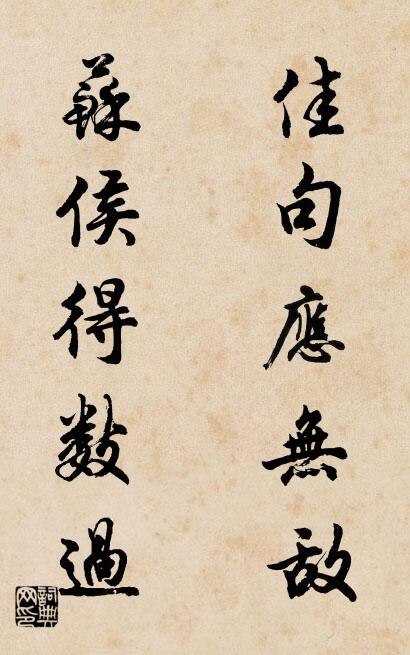 佳句應無敌
蘇侯得數過
詞典
网印